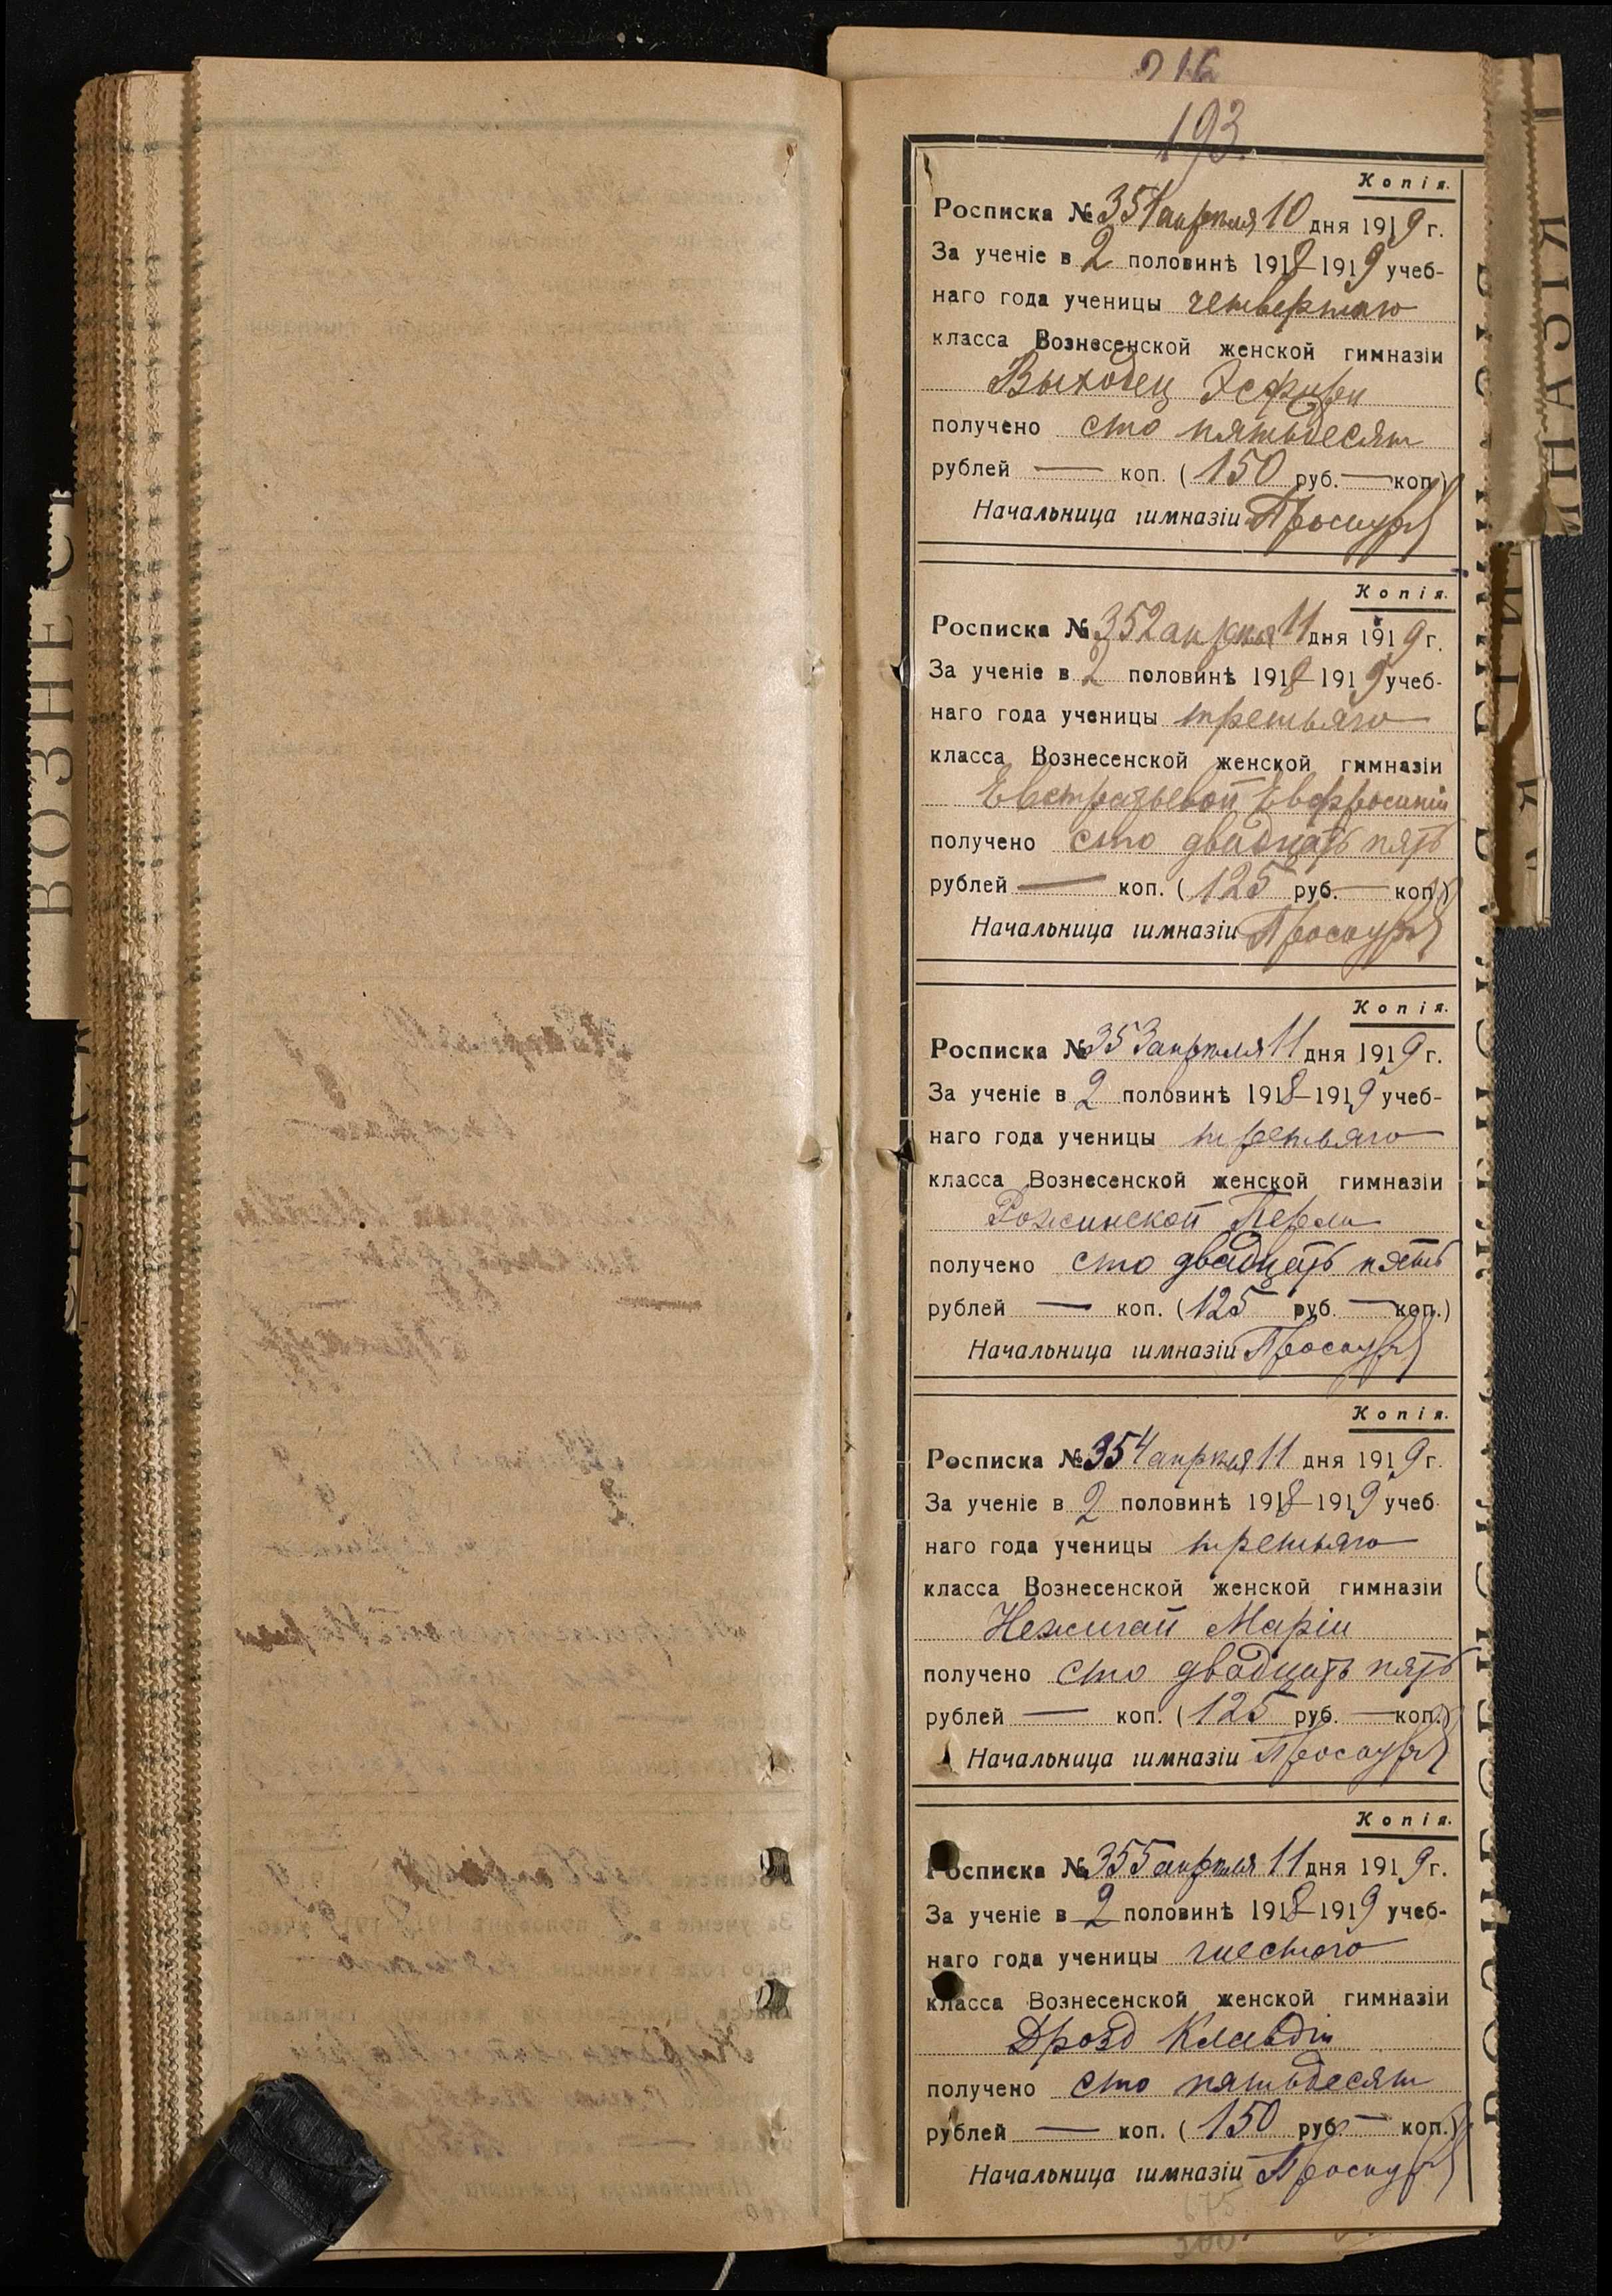 ВОЗНЕС
216
193.
Копія.
Росписка № 351 апреля 10 дня 1919 г.
За ученіе в 2 половинѣ 1918-1919 учеб-
наго года ученицы четвертаго
класса Вознесенской женской гимназіи
Выходец Эсфири
получено сто пятьдесят
рублей — коп. (150 руб. — коп.)
Начальница гимназіи Проскур
Копія.
Росписка № 352 апреля 11 дня 1919 г.
За ученіе в 2 половинѣ 1918-1919 учеб-
наго года ученицы третьяго
класса Вознесенской женской гимназіи
Евстратьевой Евфросиніи
получено сто двадцать пять
рублей — коп. (125 руб. — коп.)
Начальница гимназіи Проскур
Копія.
Росписка № 353 апреля 11 дня 1919 г.
За ученіе в 2 половинѣ 1918-1919 учеб-
наго года ученицы третьяго
класса Вознесенской женской гимназіи
Рожинской Перли
получено сто двадцать пять
рублей — коп. (125 руб. — коп.)
Начальница гимназіи Проскур
Копія.
Росписка № 354 апреля 11 дня 1919 г.
За ученіе в 2 половинѣ 1918-1919 учеб-
наго года ученицы третьяго
класса Вознесенской женской гимназіи
Нежигай Маріи
получено сто двадцать пять
рублей — коп. (125 руб. — коп.)
Начальница гимназіи Проскур
Копія.
Росписка № 355 апреля 11 дня 1919 г.
За ученіе в 2 половинѣ 1918-1919 учеб-
наго года ученицы шестого
класса Вознесенской женской гимназіи
Дрозд Клавдіи
получено сто пятьдесят
рублей — коп. (150 руб. — коп.)
Начальница гимназіи Проскур
675